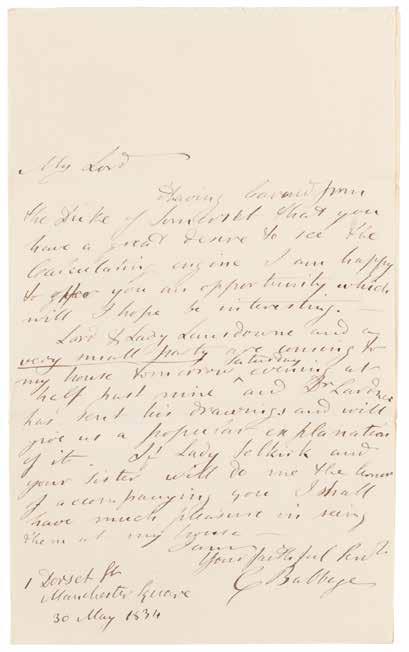 My Lord
Having learnd from
the Duke of Somerset that you
have a great desire to see the
Calculating engine I am happy
to offer you an opportunity which
will I hope be interesting.—
Lord & Lady Lansdowne and a
very small party are coming to
my house tomorrow Saturday evening at
half past nine and Dr Lardner
has sent his drawings and will
give us a popular explanation
of it. If Lady Selkirk and
your Sister will do me the honor
of accompanying you I shall
have much pleasure in seeing
them at my house
I am
Your faithful Servt
C Babbage
1 Dorset St
Manchester Square
30 May 1834